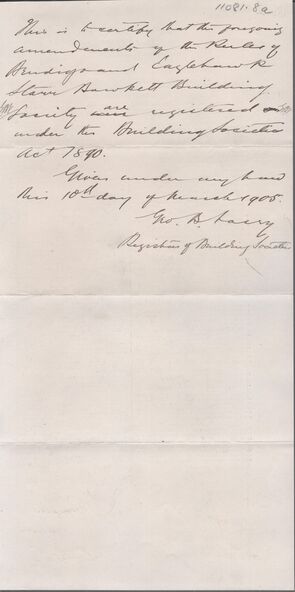 11081.8a
This is to certify that the foregoing
amendments of the Rules of
Bendigo and Eaglehawk
Starr Bowkett Building
Society are registered
under the Building Societies
Act 1890.
Given under my hand
this 10th day of March 1905.
Geo. D.
Registrar of Building Societies